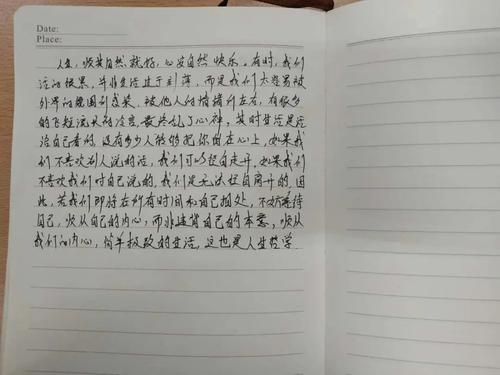 Date:
Place:
人生, 顺其自然就好, 心安自然快乐。有时, 我们
活的很累, 并非生活过于刻薄, 而是我们太容易被
外界的氛围所感染, 被他人的情绪所左右, 有很多
的飞短流长的冷言, 最终乱了心神, 其时生活是活
给自己看的, 没有多少人能够把你留在心上, 如果我
们不喜欢别人说的话, 我们可以径自走开, 如果我们
不喜欢我们对自己说的, 我们是无法径自离开的, 因
此, 若我们即将在所有时间和自己相处, 不妨善待
自己, 顺从自己的内心, 而非违背自己的本意, 顺从
我们的内心, 简单极致的生活, 这也是人生哲学